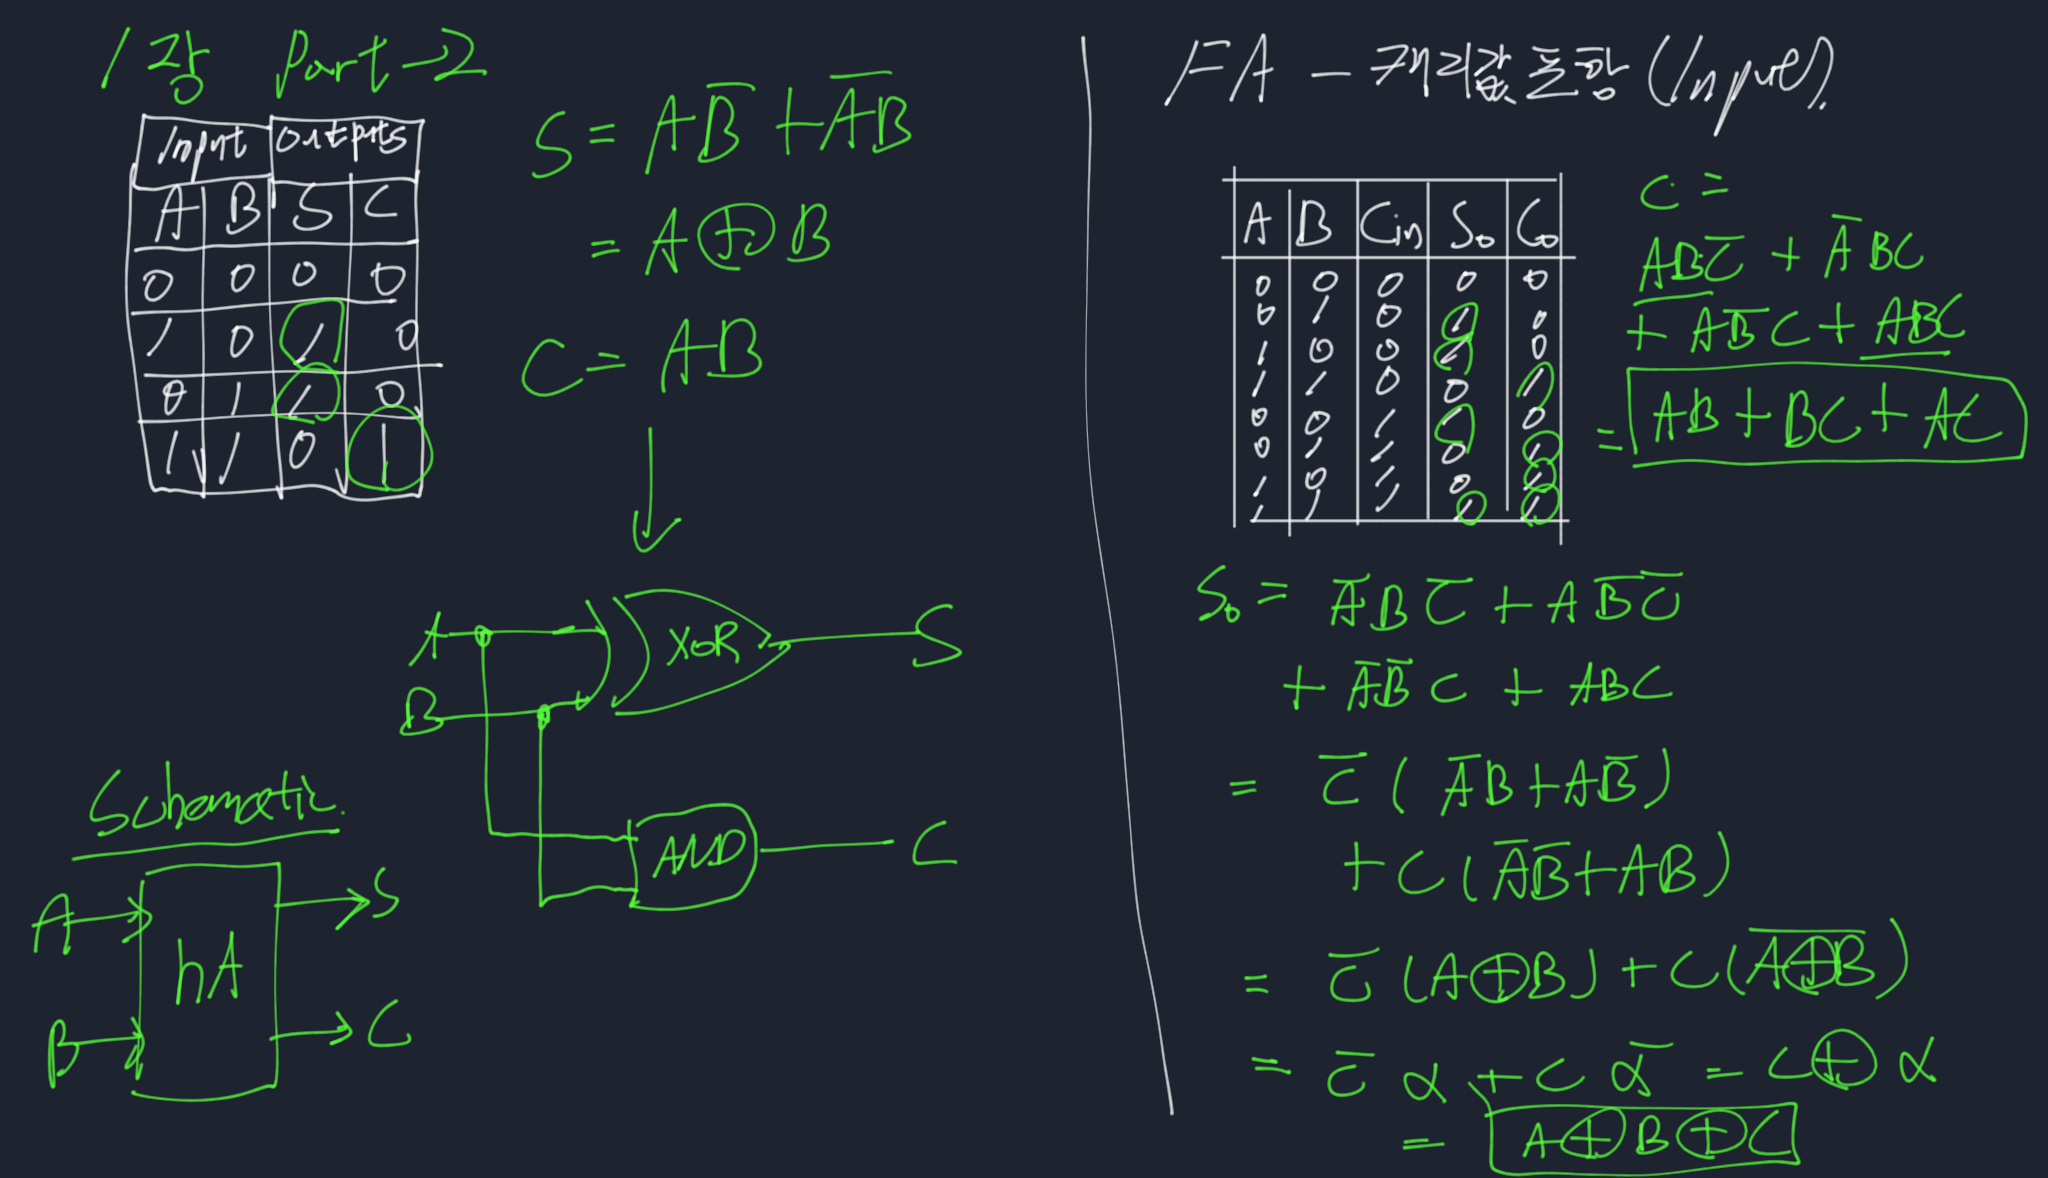 1강 Part-2
Input Outputs
A B S C
0 0 0 0
1 0 1 0
0 1 1 0
1 1 0 1
S = AB̅ + A̅B
= A⊕B
C = AB
A
B
XOR
S
AND
C
Schematic.
A
B
hA
S
C
FA - 캐리값 포함 (Input)
A B Cin S₀ C₀
0 0 0 0 0
0 1 0 1 0
1 0 0 1 0
1 1 0 0 1
0 0 1 1 0
0 1 1 0 1
1 0 1 0 1
1 1 1 1 1
C =
ABC̅ + A̅BC
+ AB̅C + ABC
= AB + BC + AC
S₀ = A̅BC̅ + AB̅C̅
+ A̅B̅C + ABC
= C̅(A̅B + AB̅)
+ C(A̅B̅ + AB)
= C̅(A⊕B) + C(A̅⊕̅B̅)
= C̅α + Cα̅ = C⊕α
= A⊕B⊕C